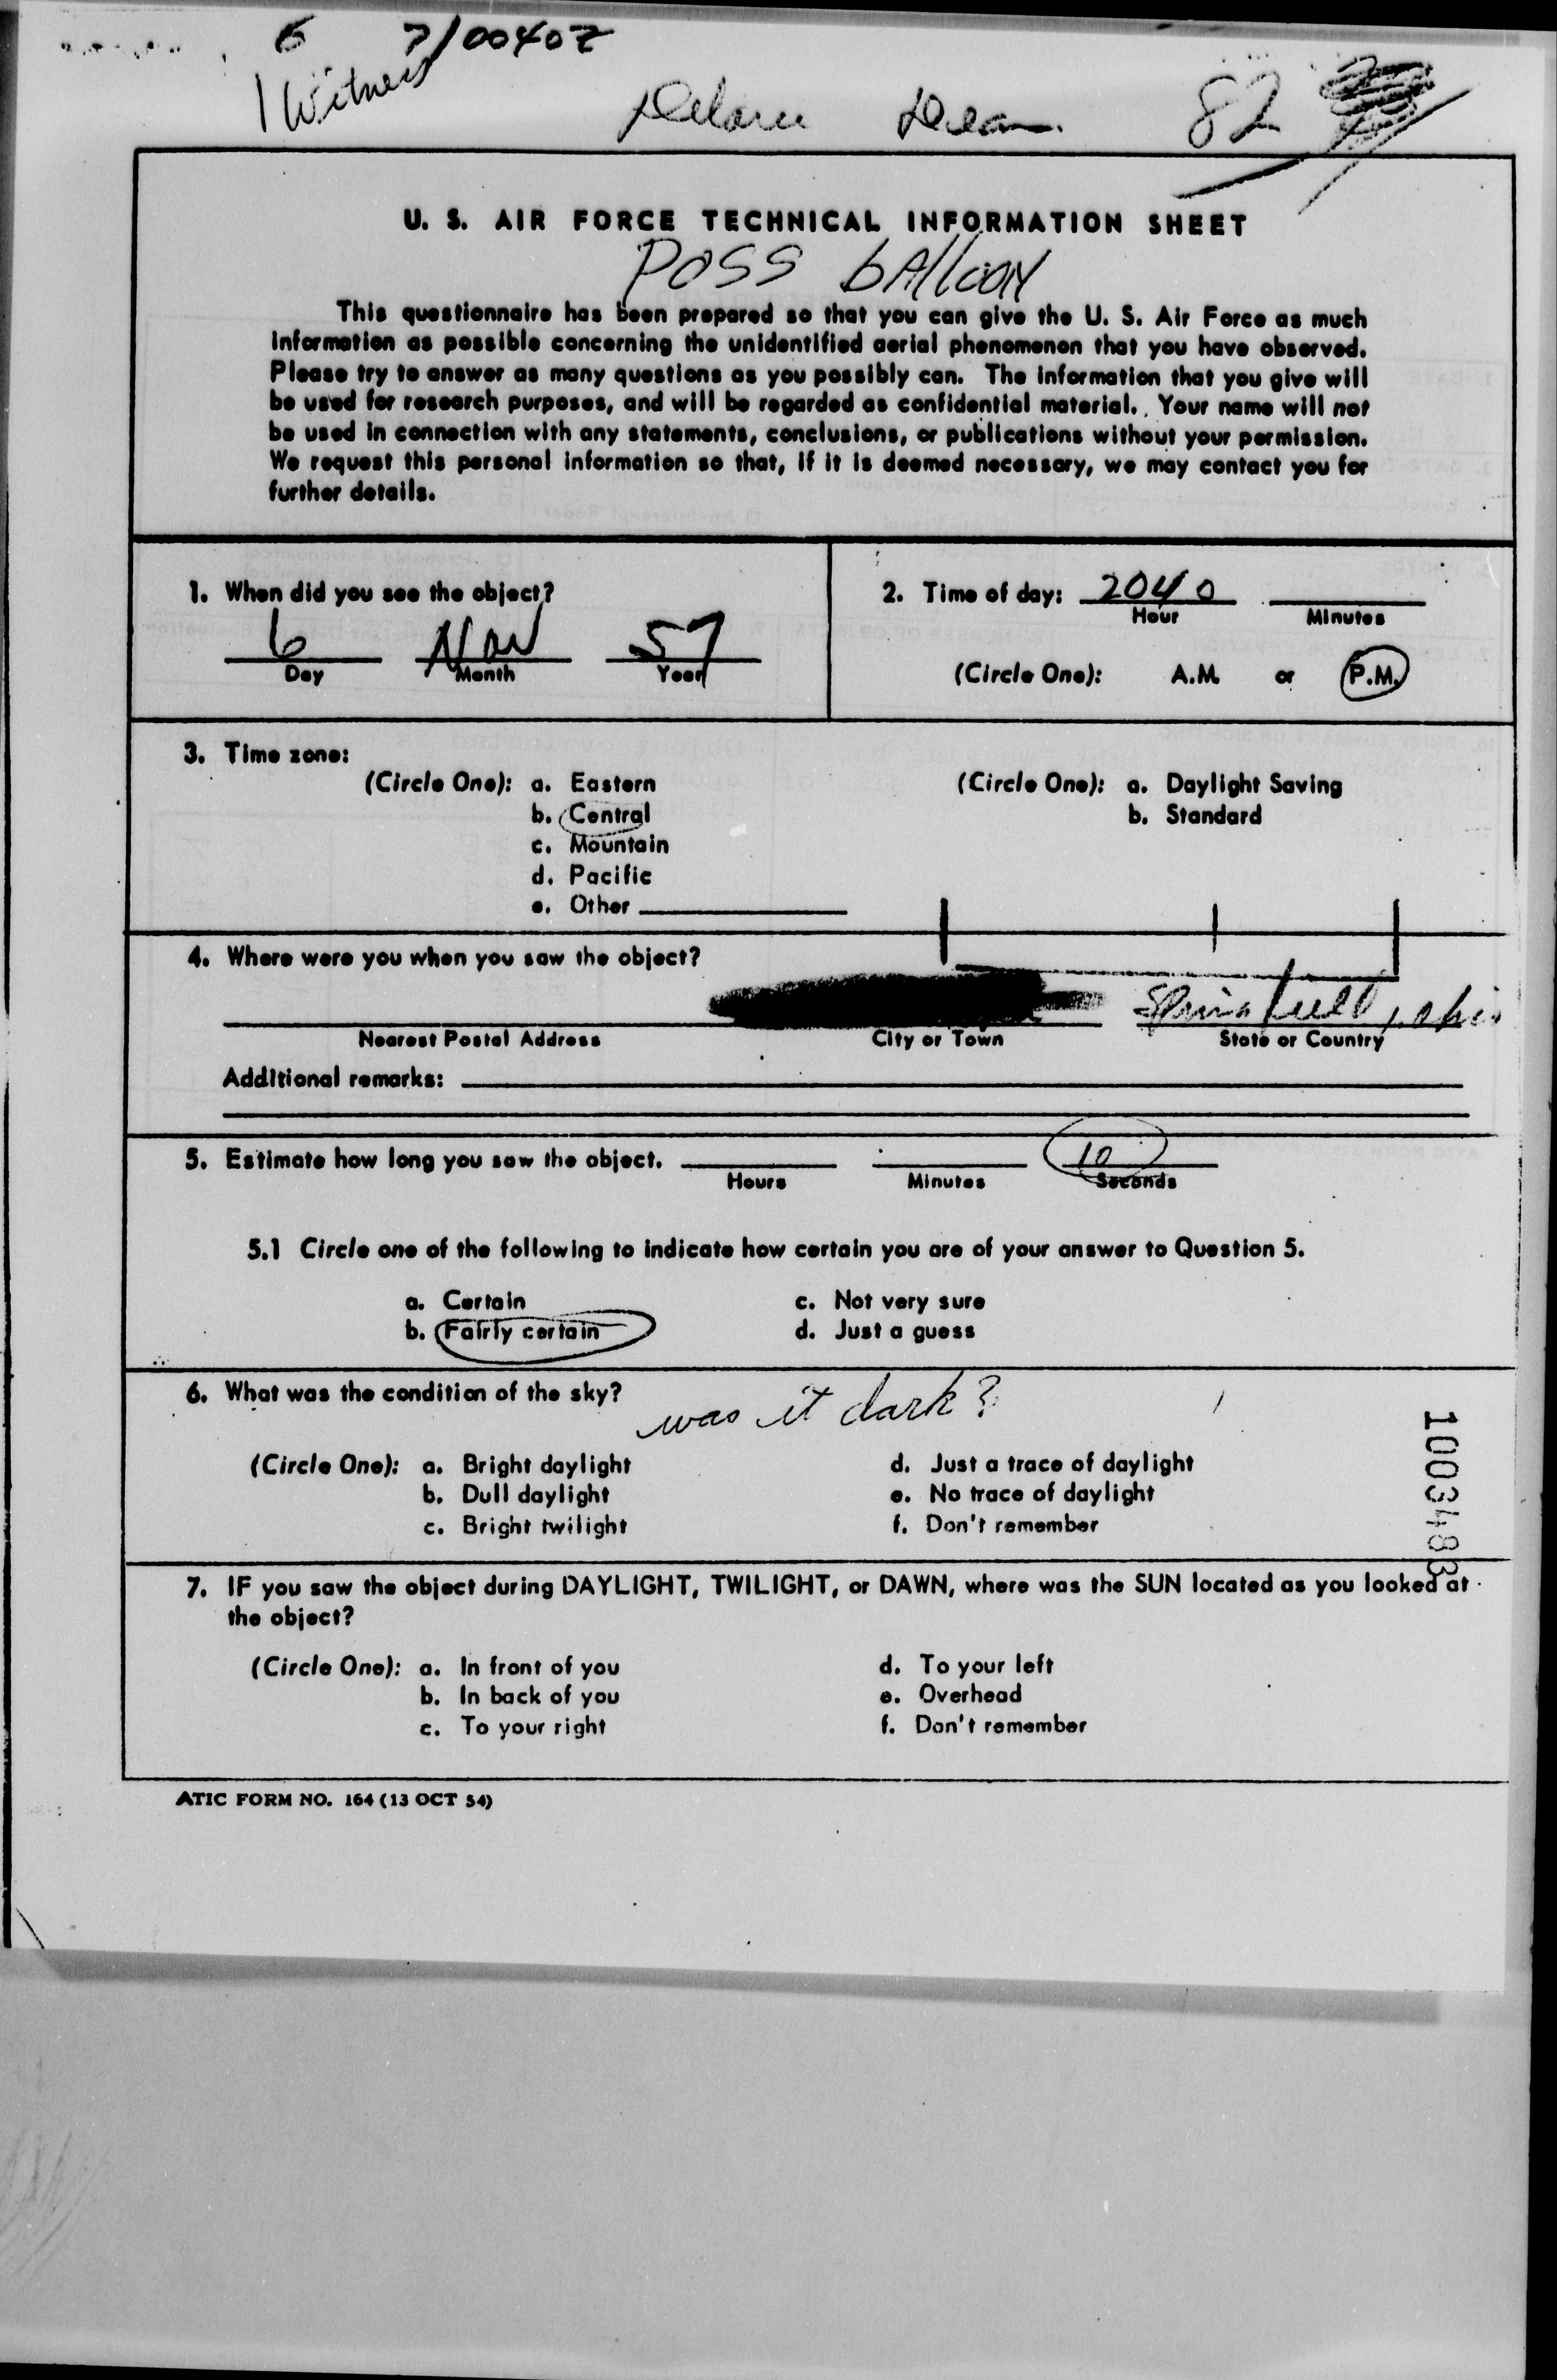 6 7/00402
1 Witness
82
U. S. AIR FORCE TECHNICAL INFORMATION SHEET
POSS bAllOON
This questionnaire has been prepared so that you can give the U. S. Air Force as much
information as possible concerning the unidentified aerial phenomenon that you have observed.
Please try to answer as many questions as you possibly can. The information that you give will
be used for research purposes, and will be regarded as confidential material. Your name will not
be used in connection with any statements, conclusions, or publications without your permission.
We request this personal information so that, if it is deemed necessary, we may contact you for
further details.
1. When did you see the object?
6 Nov 57
Day Month Year
2. Time of day: 2040
Hour Minutes
(Circle One): A.M. or P.M.
3. Time zone:
(Circle One): a. Eastern
b. Central
c. Mountain
d. Pacific
e. Other
(Circle One): a. Daylight Saving
b. Standard
4. Where were you when you saw the object?
Springfield, Ohio
Nearest Postal Address City or Town State or Country
Additional remarks:
5. Estimate how long you saw the object. 10
Hours Minutes Seconds
5.1 Circle one of the following to indicate how certain you are of your answer to Question 5.
a. Certain c. Not very sure
b. Fairly certain d. Just a guess
6. What was the condition of the sky?
was it dark?
(Circle One): a. Bright daylight d. Just a trace of daylight
b. Dull daylight e. No trace of daylight
c. Bright twilight f. Don't remember
1003483
7. IF you saw the object during DAYLIGHT, TWILIGHT, or DAWN, where was the SUN located as you looked at
the object?
(Circle One): a. In front of you d. To your left
b. In back of you e. Overhead
c. To your right f. Don't remember
ATIC FORM NO. 164 (13 OCT 54)